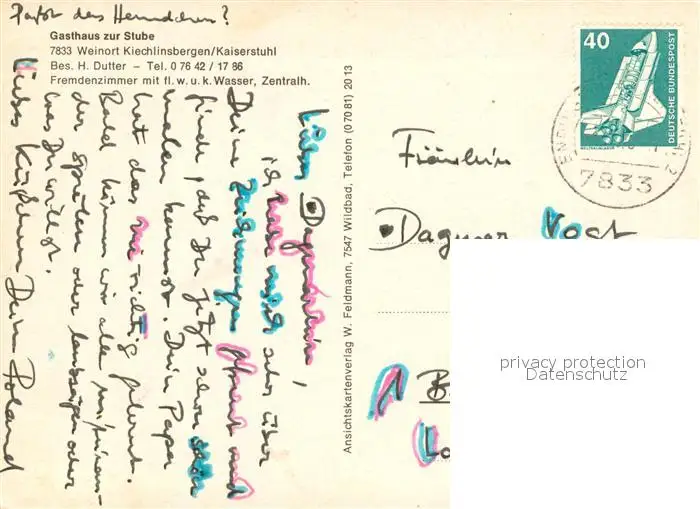 Paßt das Hemdchen?
Gasthaus zur Stube
7833 Weinort Kiechlinsbergen/Kaiserstuhl
Bes. H. Dutter – Tel. 0 76 42 / 17 86
Fremdenzimmer mit fl. w. u. k. Wasser, Zentralh.
Liebes Dagmarlein,
ich habe mich sehr über
Deine Zeichnungen gefreut und
finde, daß Du jetzt schon schön
malen kannst. Dein Papa
hat das nie richtig gelernt.
Bald können wir alle
der spielen oder oder
was Du willst.
Liebes Küßchen Dein Roland
Ansichtskartenverlag W. Feldmann, 7547 Wildbad, Telefon (0 70 81) 20 13
40
DEUTSCHE BUNDESPOST
7833
Fräulein
Dagmar Vogt
1 B
Lo
privacy protection
Datenschutz